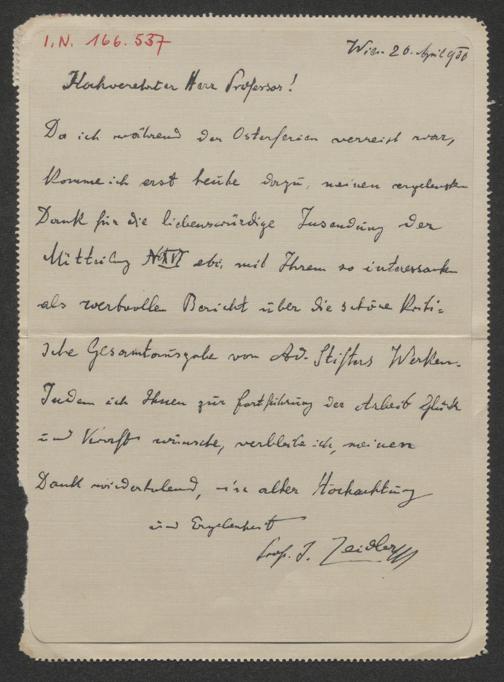 I.N. 166.537
Wien 20. April 930
Hochverehrter Herr Professor!
Da ich während der Osterferien verreist war,
komme ich erst heute dazu, meinen ergebensten
Dank für die liebenswürdige Zusendung der
Mitteilung XVI mit Ihrem so interessanten
als wertvollen Bericht über die schöne Kriti=
sche Gesamtausgabe von Ad. Stifters Werken.
Indem ich Ihnen zur Fortführung der Arbeit Glück
und Kraft wünsche, verbleibe ich, meinen
Dank wiederholend, in alter Hochachtung
und Ergebenheit
Prof. J. Zeidler